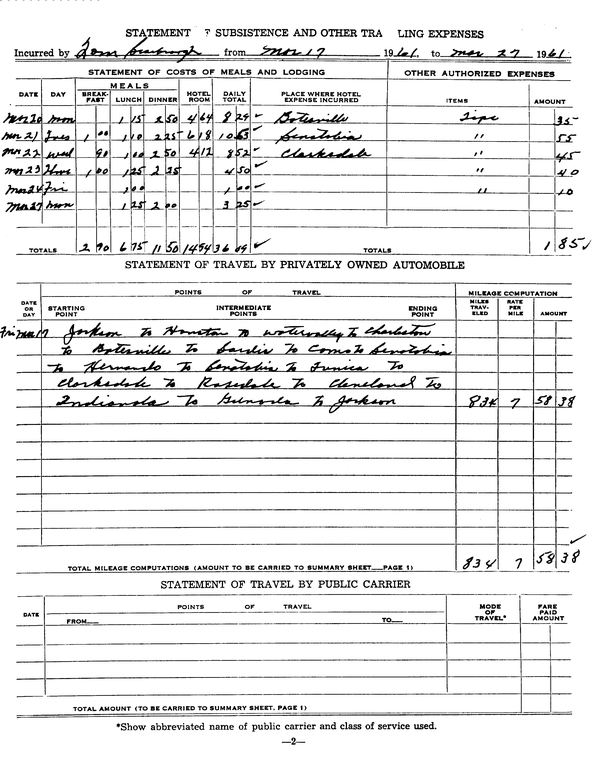 STATEMENT SUBSISTENCE AND OTHER TRA LING EXPENSES
Incurred by Tom Scarbrough from Mar 17 1961, to Mar 27 1961
STATEMENT OF COSTS OF MEALS AND LODGING OTHER AUTHORIZED EXPENSES
MEALS
DATE DAY BREAK-FAST LUNCH DINNER HOTEL ROOM DAILY TOTAL PLACE WHERE HOTEL EXPENSE INCURRED ITEMS AMOUNT
Mar 20 Mon 1 15 2 50 4 64 8 29 ✓ Batesville Tips 35
Mar 21 Tues 1 00 1 10 2 25 6 18 10 53 ✓ Senatobia " 55
Mar 22 Wed 90 1 00 2 50 4 12 8 52 ✓ Clarksdale " 45
Mar 23 Thurs 1 00 1 25 2 25 4 50 ✓ " 40
Mar 24 Fri 1 00 1 00 ✓ " 10
Mar 27 Mon 1 25 2 00 3 25 ✓
TOTALS 2 90 6 75 11 50 14 94 36 09 ✓ TOTALS 1 85 ✓
STATEMENT OF TRAVEL BY PRIVATELY OWNED AUTOMOBILE
POINTS OF TRAVEL MILEAGE COMPUTATION
DATE OR DAY STARTING POINT INTERMEDIATE POINTS ENDING POINT MILES TRAV-ELED RATE PER MILE AMOUNT
Fri Mar 17 Jackson to Houston to Watervalley to Charleston
to Batesville to Sardis to Como to Senatobia
to Hernando to Senatobia to Tunica to
Clarksdale to Rosedale to Cleveland to
Indianola to Grenada to Jackson 834 7 58 38
✓
TOTAL MILEAGE COMPUTATIONS (AMOUNT TO BE CARRIED TO SUMMARY SHEET__PAGE 1) 834 7 58 38
STATEMENT OF TRAVEL BY PUBLIC CARRIER
DATE POINTS OF TRAVEL MODE OF TRAVEL* FARE PAID AMOUNT
FROM__ TO__
TOTAL AMOUNT (TO BE CARRIED TO SUMMARY SHEET, PAGE 1)
*Show abbreviated name of public carrier and class of service used.
—2—